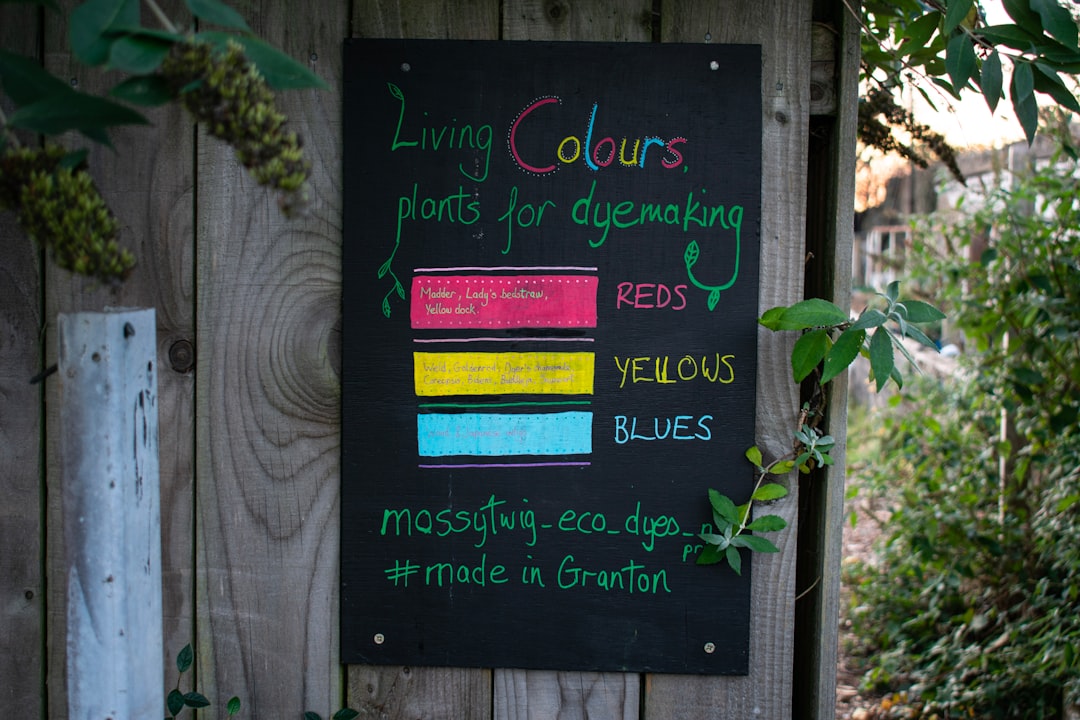 Living Colours,
plants for dyemaking
Madder, Lady's bedstraw,
Yellow dock.
REDS
Weld, Goldenrod, Dyer's chamomile
YELLOWS
BLUES
mossytwig_eco_dyes_
#made in Granton